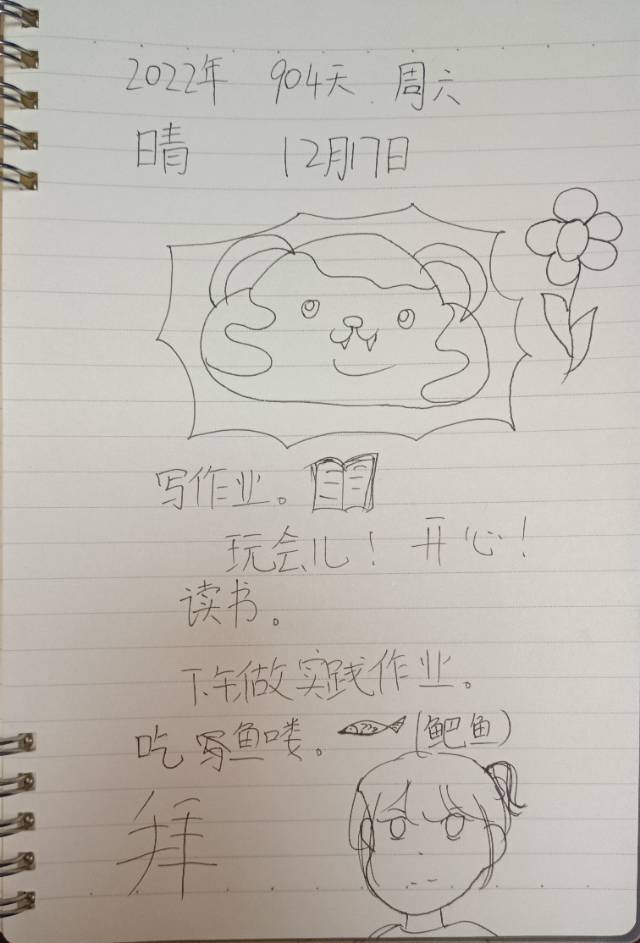 2022年 904天 周六
晴 12月17日
写作业。
玩会儿！ 开心！
读书。
下午做实践作业。
吃鱼喽。(鲃鱼)
拜